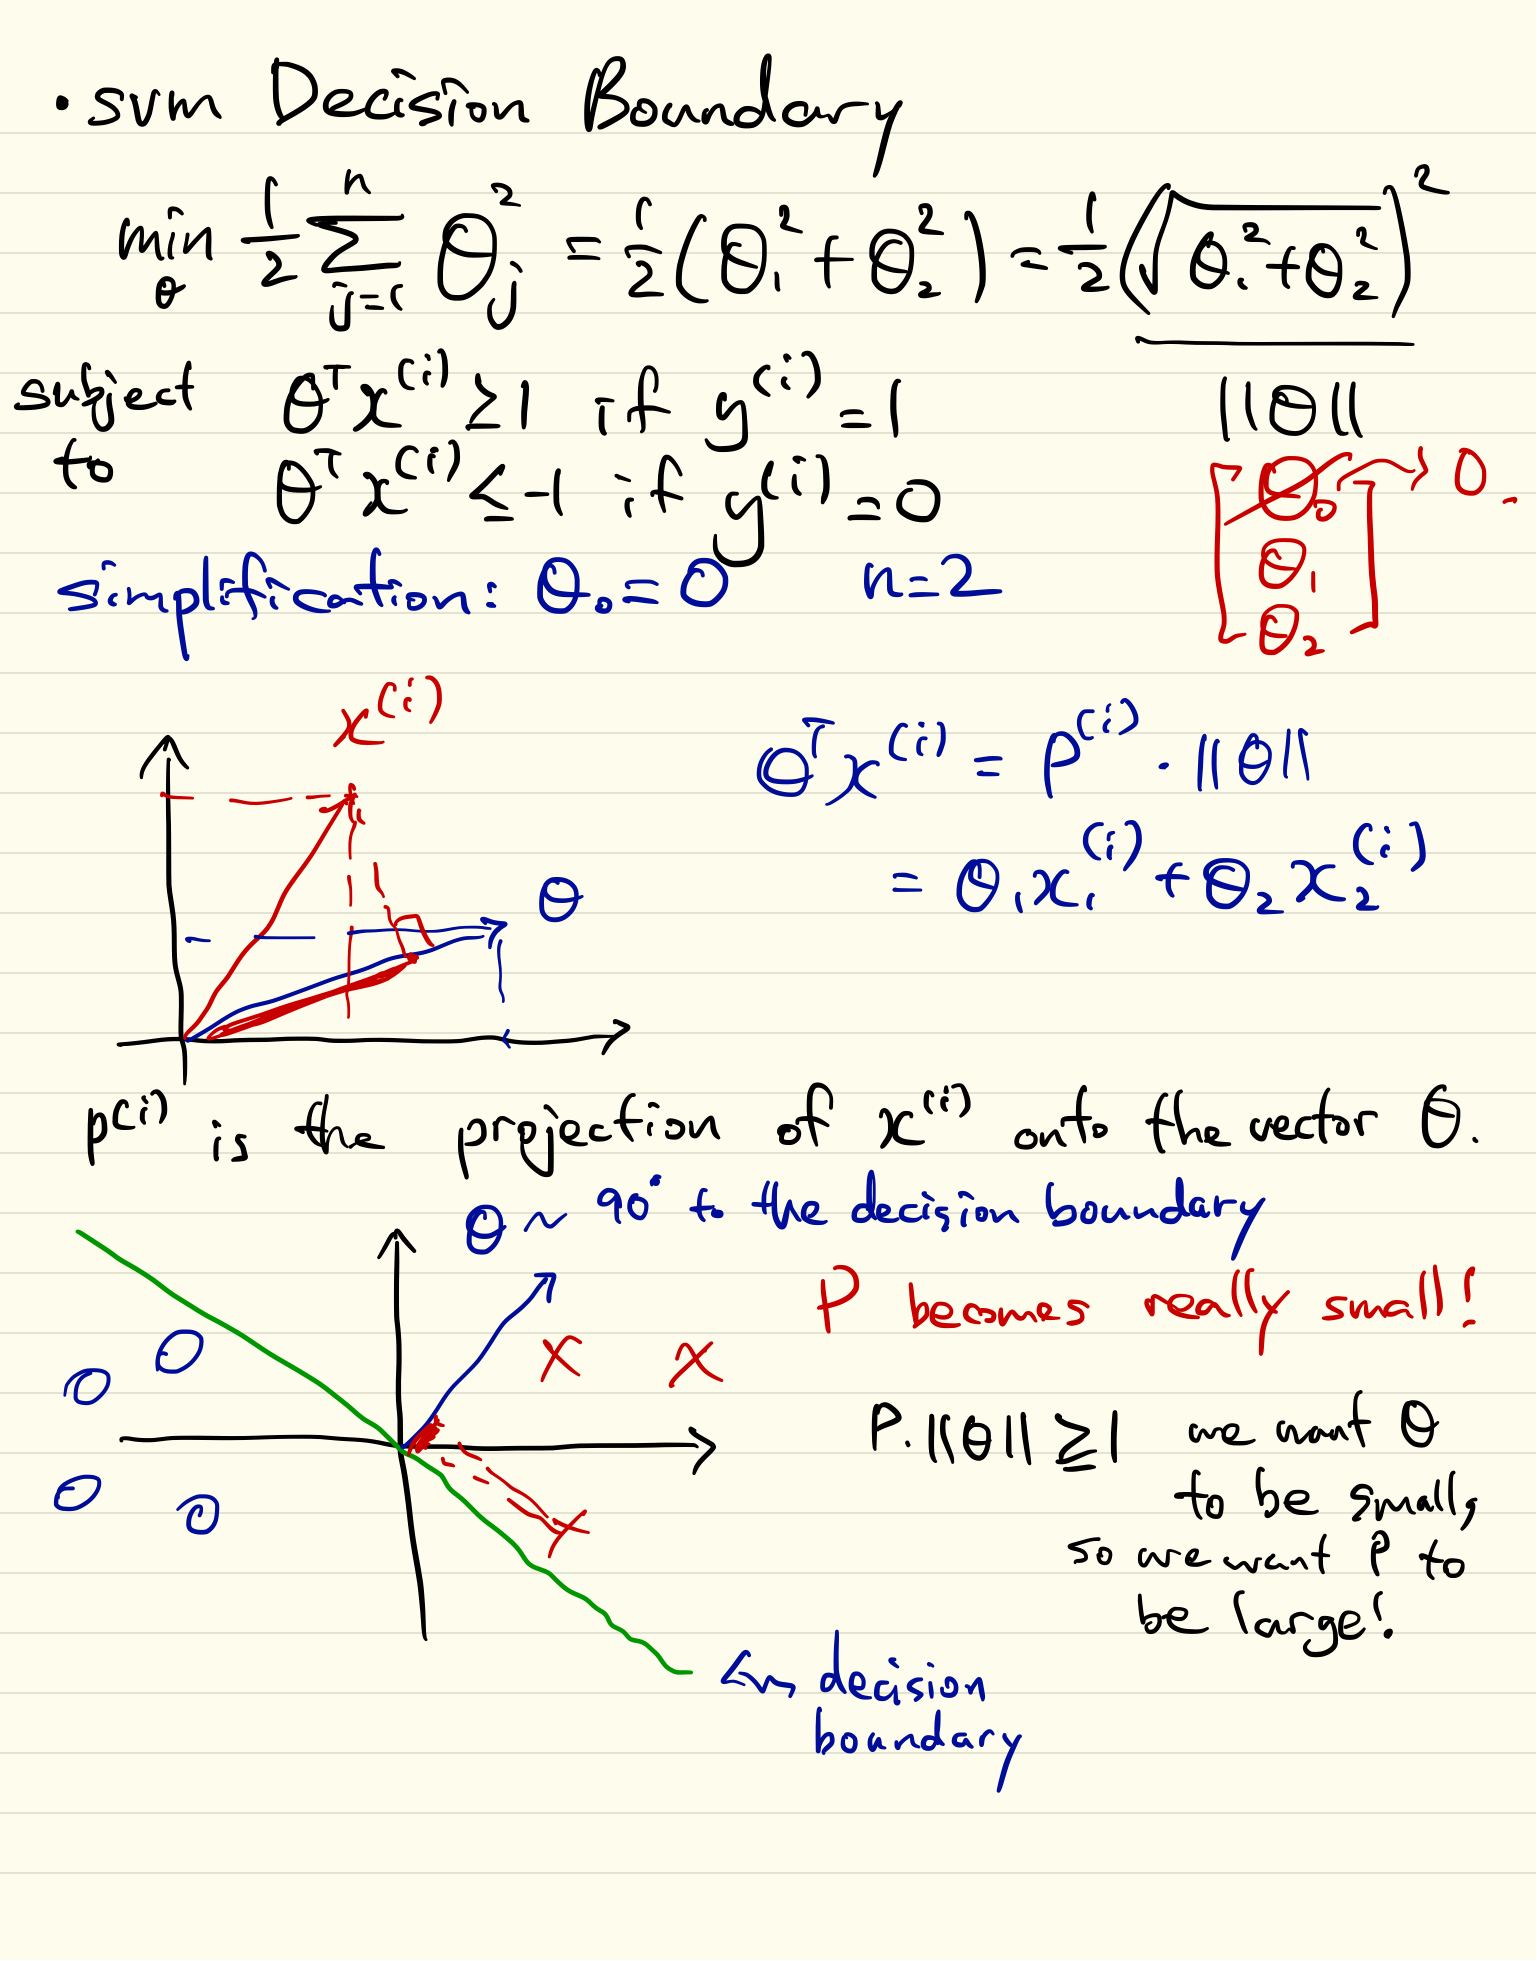 • svm Decision Boundary
min_θ 1/2 Σ_{j=1}^{n} θ_j^2 = 1/2 (θ_1^2 + θ_2^2) = 1/2 (√(θ_1^2 + θ_2^2))^2
subject to θ^T x^(i) ≥ 1 if y^(i) = 1
θ^T x^(i) ≤ -1 if y^(i) = 0
||θ||
[θ_0 → 0.
θ_1
θ_2]
simplification: θ_0 = 0 n=2
x^(i)
θ
θ^T x^(i) = P^(i) · ||θ||
= θ_1 x_1^(i) + θ_2 x_2^(i)
p^(i) is the projection of x^(i) onto the vector θ.
θ ~ 90° to the decision boundary
P becomes really small!
P. ||θ|| ≥ 1 we want θ
to be small,
so we want P to
be large!
decision
boundary